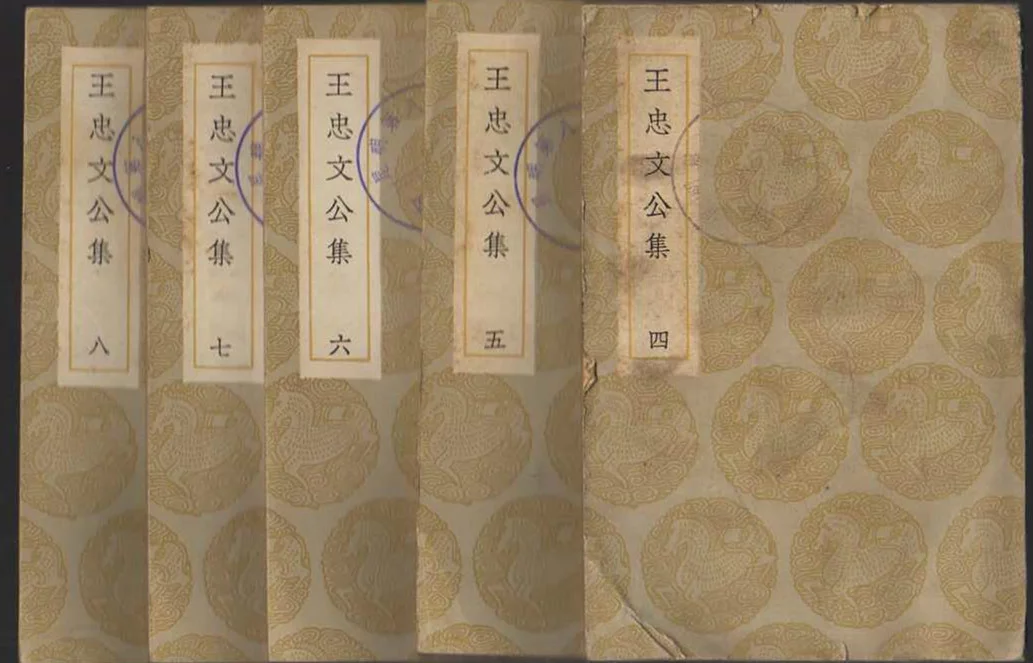 王忠文公集 四
王忠文公集 五
王忠文公集 六
王忠文公集 七
王忠文公集 八